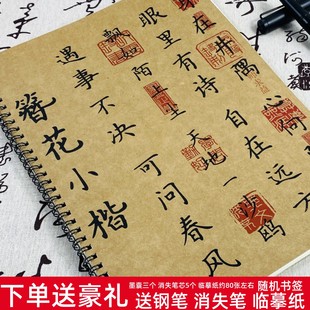 身在井隅心
眼里有诗自在远方
飘如陌上尘天地一沙鸥
遇事不决可问春风
簪花小楷
下单送豪礼
墨囊三个 消失笔芯5个 临摹纸约80张左右 随机书签
送钢笔 消失笔 临摹纸